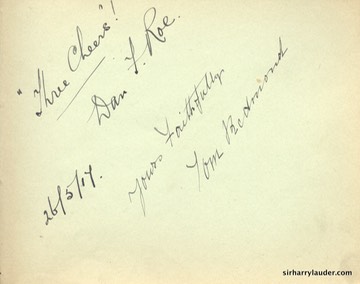 "Three Cheers"!
Dan F. Roe.
26/5/17.
Yours Faithfully
Tom Redmond
sirharrylauder.com